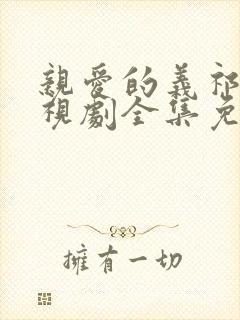 親愛的義祁
視劇全集免
擁有一切